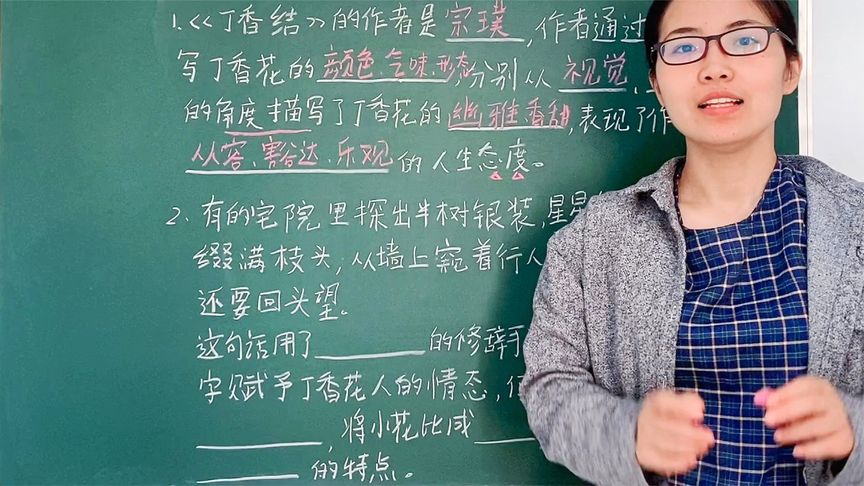 1.《丁香结》的作者是宗璞,作者通过
写丁香花的颜色、气味、形态,分别从视觉、
的角度描写了丁香花的幽雅香甜,表现了作
从容、豁达、乐观的人生态度。
2、有的宅院里探出半树银装,星星
缀满枝头,从墙上窥着行人
还要回头望。
这句话用了______的修辞手
字赋予丁香花人的情态,
______,将小花比成______
______的特点。